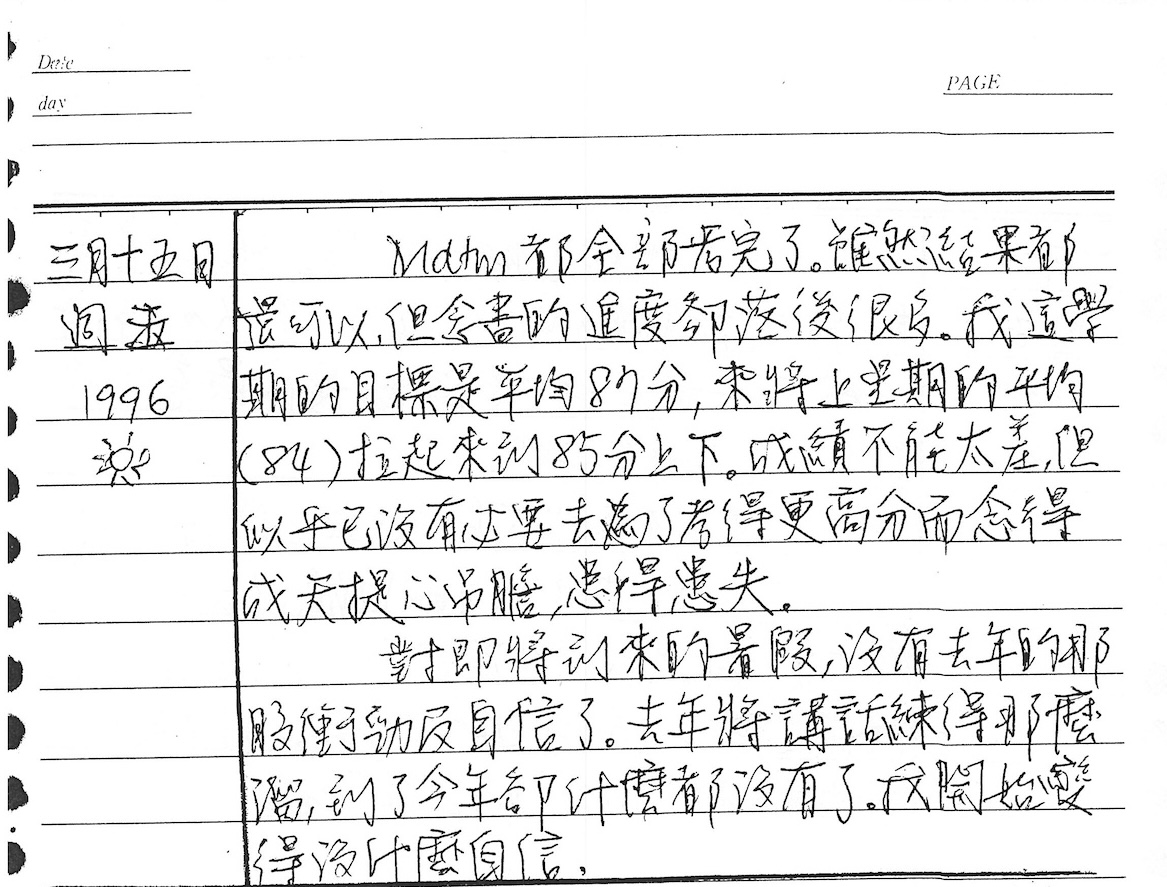 Date
day
PAGE
三月十五日
週末
1996
都全部考完了。雖然結果都
還可以,但念書的進度卻落後很多。我這學
期的目標是平均87分,來將上星期的平均
(84)拉起來到85分上下。成績不能太差,但
似乎已沒有必要去為了考得更高分而念得
成天提心吊膽,患得患失。
對即將到來的暑假,沒有去年的那
股衝勁及自信了。去年將講話練得那麼
溜,到了今年卻什麼都沒有了。我開始變
得沒什麼自信.